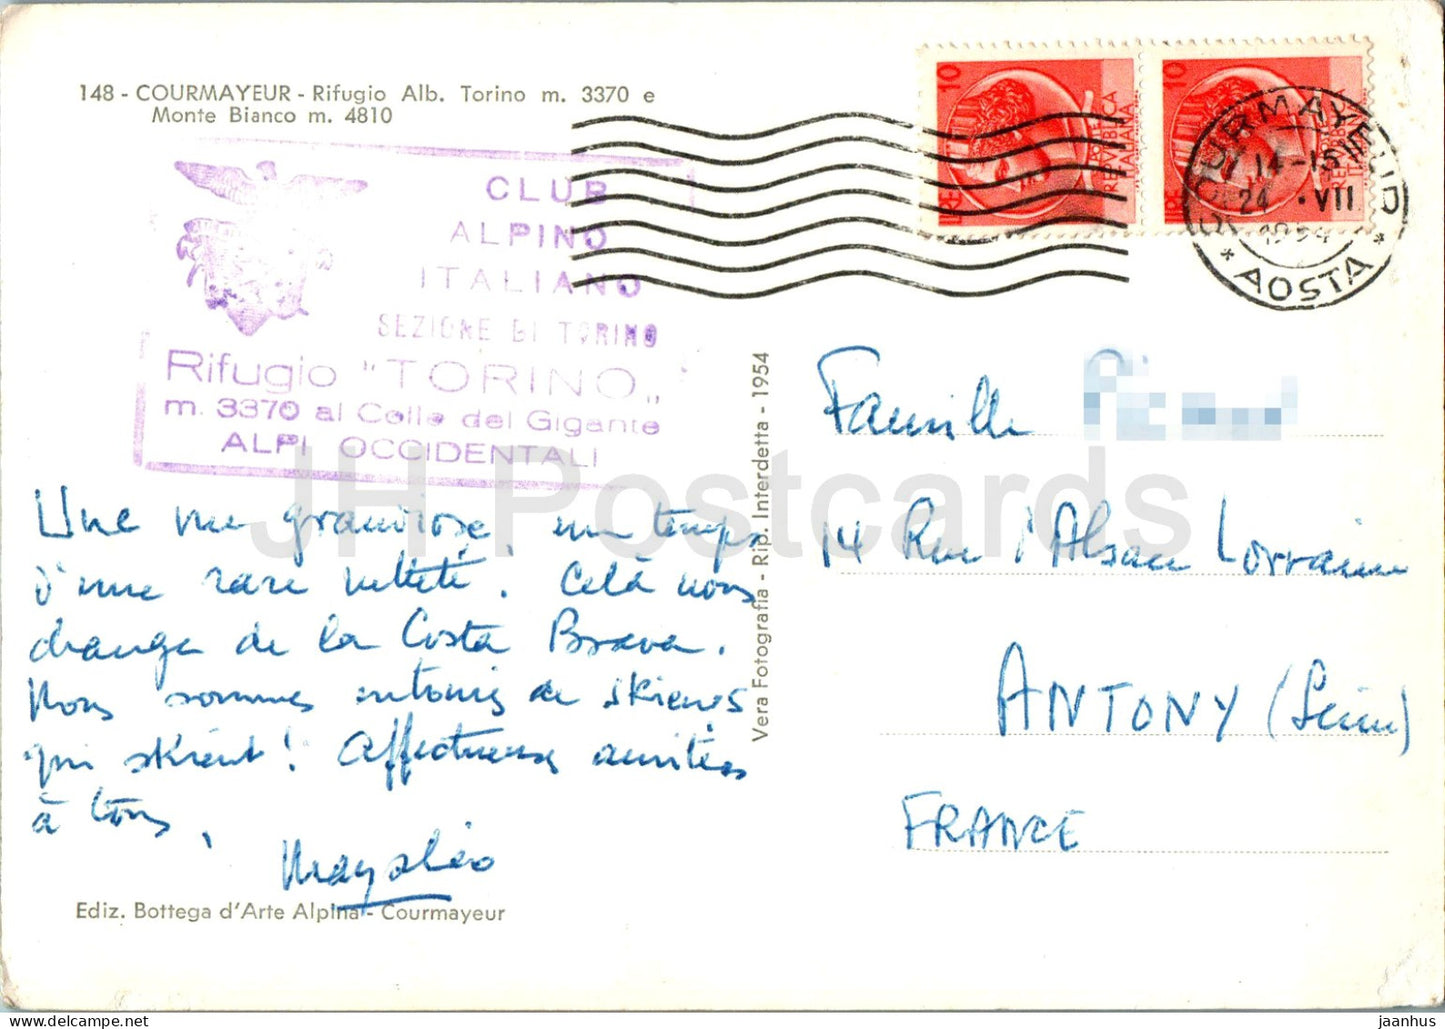 148 - COURMAYEUR - Rifugio Alb. Torino m. 3370 e
Monte Bianco m. 4810
CLUB
ALPINO
ITALIANO
SEZIONE DI TORINO
Rifugio "TORINO"
m. 3370 al Colle del Gigante
ALPI OCCIDENTALI
10
LIRE
REPVBBLICA
ITALIANA
10
LIRE
REPVBBLICA
ITALIANA
COURMAYEUR
14-15
24 · VII
1954
* AOSTA *
Une vue grandiose, un temps
d'une rare netteté. Celà nous
change de la Costa Brava.
Nous sommes entourés de skieurs
qui skient! Affectueuses amitiés
à tous,
Ediz. Bottega d'Arte Alpina - Courmayeur
Vera Fotografia - Rip. Interdetta - 1954
Famille
14 Rue d'Alsace Lorraine
ANTONY (Seine)
FRANCE
JH Postcards
jaanhus